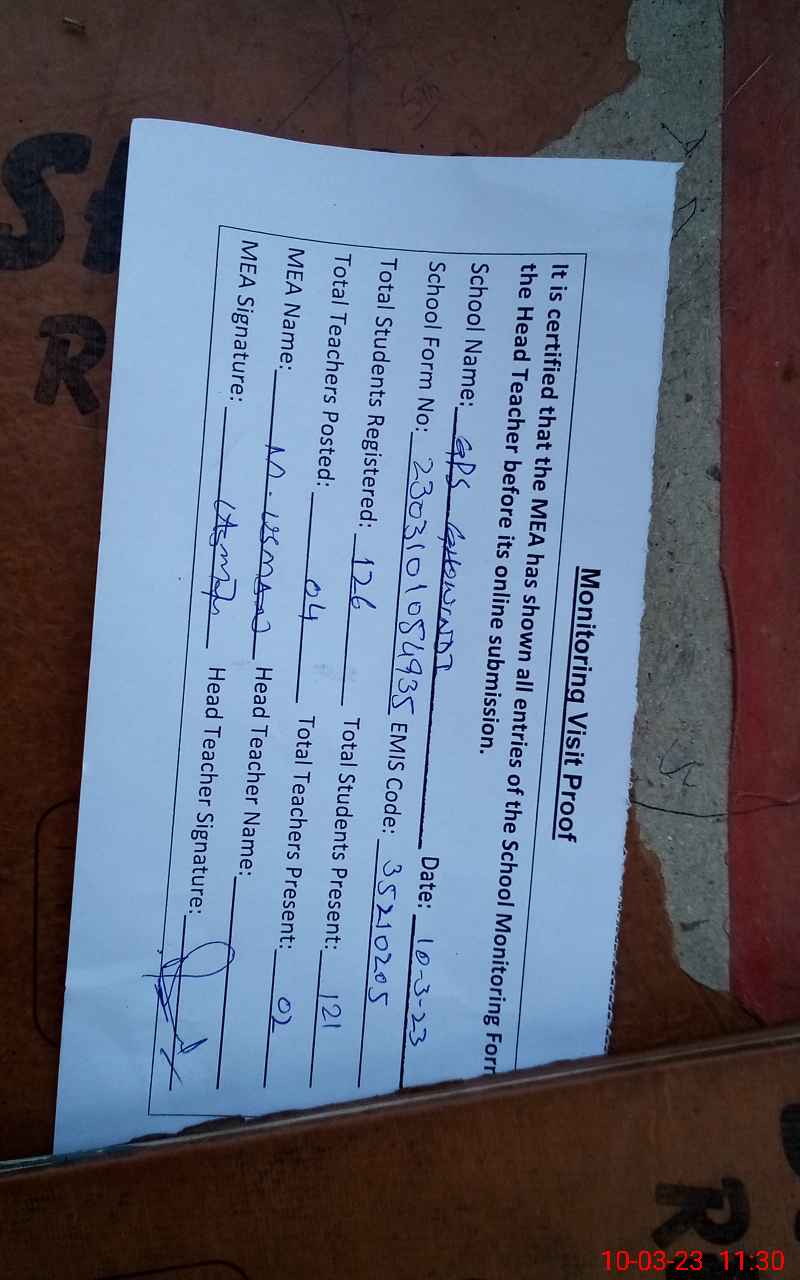 Monitoring Visit Proof
It is certified that the MEA has shown all entries of the School Monitoring Form
the Head Teacher before its online submission.
School Name: GPS Date: 10-3-23
School Form No: 2303101054935 EMIS Code: 35210205
Total Students Registered: 126 Total Students Present: 121
Total Teachers Posted: 04 Total Teachers Present: 02
MEA Name: M. USMAN Head Teacher Name:
MEA Signature: Usman Head Teacher Signature:
10-03-23 11:30